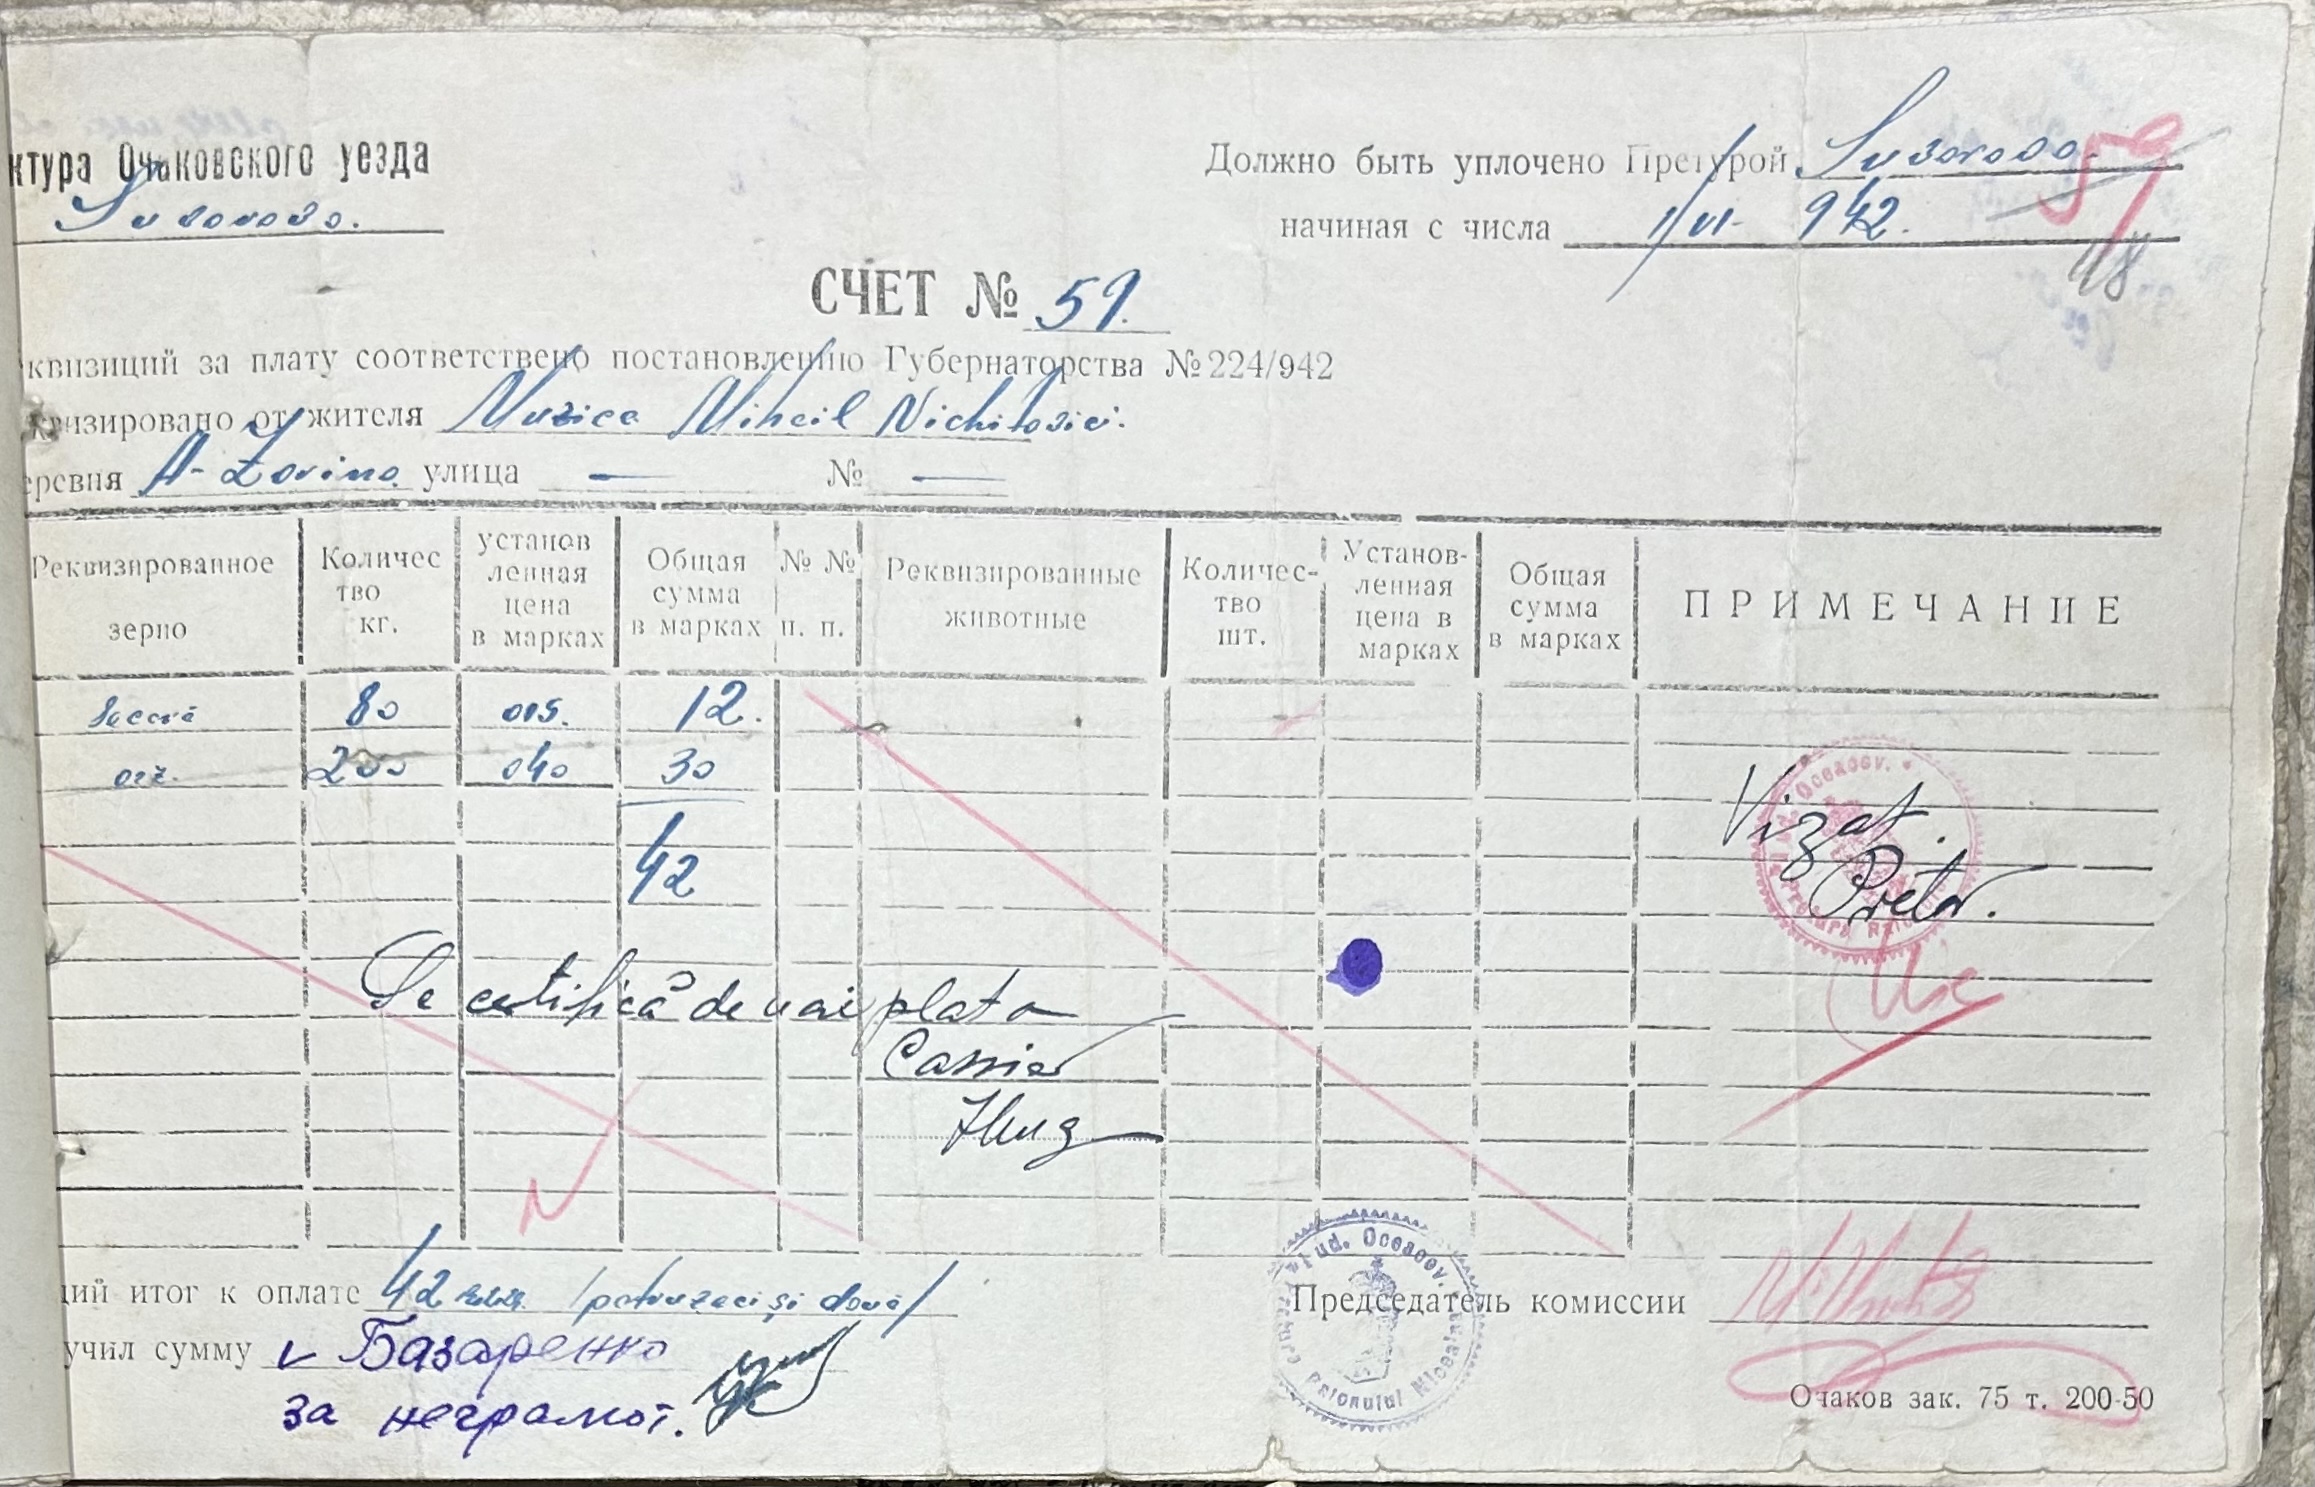 ктура Очаковского уезда
Suvorovo.
Должно быть уплочено Претурой Suvorovo.
начиная с числа 1/VI- 942.
59
48
СЧЕТ № 59.
квизиций за плату соответствено постановлению Губернаторства №224/942
квизировано от жителя Muzica Mihail Nichitovici.
еревня A-Zorina улица — № —
Реквизированное зерно
Количес тво кг.
установ ленная цена в марках
Общая сумма в марках
№ № п. п.
Реквизированные животные
Количес- тво шт.
Установ- ленная цена в марках
Общая сумма в марках
ПРИМЕЧАНИЕ
Secară 80 015. 12.
orz. 200 040 30
42
Vizat.
Pretor.
Se certifică de noi plata
Cassier
щий итог к оплате 42 /patruzeci și două/
учил сумму Базаренко
за неграмот.
Председатель комиссии
Jud. Oceacov.
Очаков зак. 75 т. 200-50